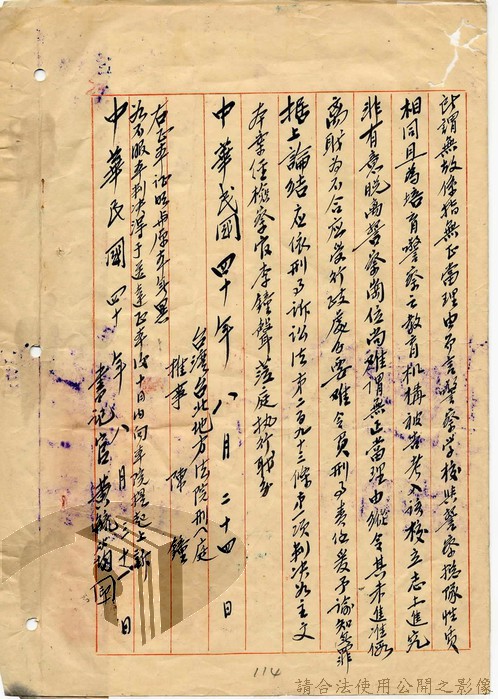 所謂無故係指無正當理由而言警察學校與警察總隊性質
相同且為培育警察之教育機構被告考入該校立志上進究
非有意脫離警察崗位尚難謂無正當理由縱令其未進准假
離職為不合應受行政處分要難令負刑事責任爰予諭知無罪
據上論結應依刑事訴訟法第二百九十三條第一項判決如主文
本案經檢察官李鐘聲蒞庭執行職務
中華民國四十年八月二十四日
台灣台北地方法院刑庭
推事 陳鐘
右正本證明與原本無異
如不服本判決得于送達正本後十日內向本院提起上訴
書記官黃
中華民國四十年八月三十一日
114
請合法使用公開之影像